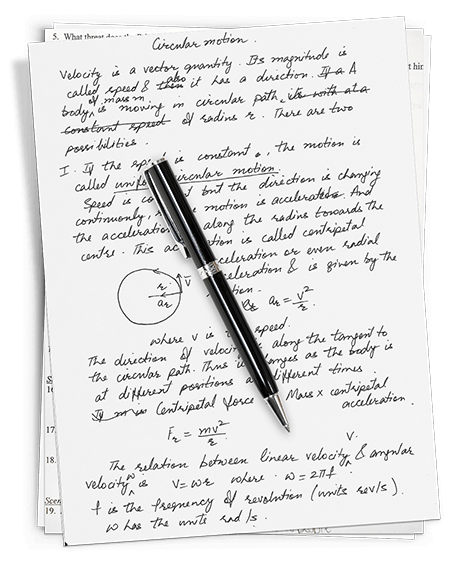 5. What threat does the
Circular motion.
Velocity is a vector quantity. Its magnitude is
called speed & then also it has a direction. If a A
body of mass m is moving in circular path, its with at a
constant speed of radius r. There are two
possibilities.
I. If the is constant, the motion is
called circular motion.
Speed is but the direction is changing
continuously, motion is accelerated. And
the acceleration along the radius towards the
centre. This is called centripetal
or even radial
& is given by the
r v
ar
ar = v²/r.
where v is speed.
The direction of along the tangent to
the circular path. Thus as the body is
at different positions different times.
If m is Centripetal force Mass x centripetal
acceleration.
Fr = mv²/r
The relation between linear velocity v & angular
velocity w is v = wr where w = 2πf.
f is the frequency of revolution (units rev/s).
w has the units rad/s.
t hir
16
17.
18.
19.